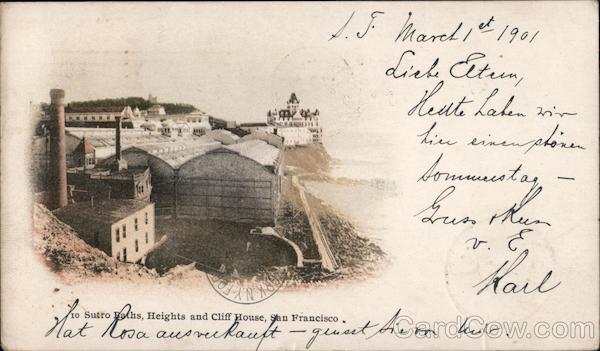 S. F. March 1st 1901
Liebe Eltern,
Heute haben wir
hier einen schönen
Sommerstag —
Gruss & Kuss
v. E
Karl
10 Sutro Baths, Heights and Cliff House, San Francisco
Hat Rosa ausverkauft — grüsst sie von
CardCow.com